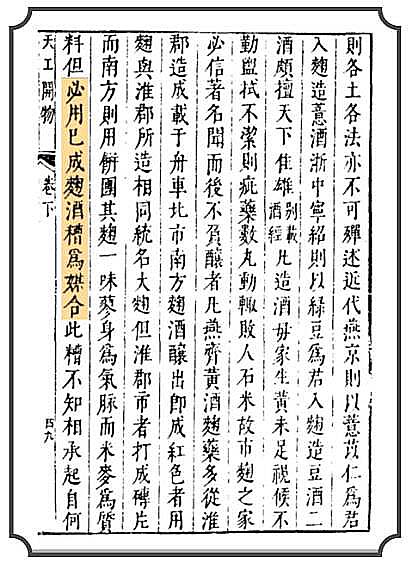 則各土各法亦不可殫述近代燕京則以薏苡仁爲君
入麴造薏酒浙中寧紹則以綠豆爲君入麴造豆酒二
酒頗擅天下佳雄別載酒經凡造酒母家生黃未足視候不
勤盥拭不潔則疵藥數丸動輒敗人石米故市麴之家
必信著名聞而後不負釀者凡燕齊黃酒麴藥多從淮
郡造成載于舟車北市南方麴酒釀出卽成紅色者用
麴與淮郡所造相同統名大麴但淮郡市者打成磚片
而南方則用餅團其麴一味蓼身爲氣脈而米麥爲質
料但必用已成麴酒糟爲媒合此糟不知相承起自何
天工開物
卷下
四九